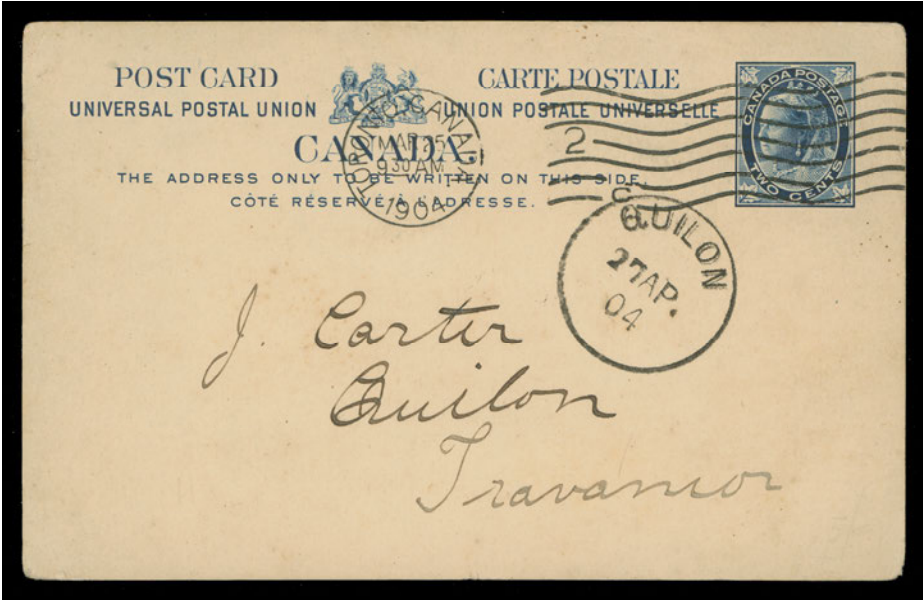 POST CARD CARTE POSTALE
UNIVERSAL POSTAL UNION UNION POSTALE UNIVERSELLE
CANADA.
THE ADDRESS ONLY TO BE WRITTEN ON THIS SIDE.
CÔTÉ RÉSERVÉ À L'ADRESSE.
CANADA POSTAGE
TWO CENTS
TORONTO CANADA
MAR 25
930 AM
1904
2
QUILON
27 AP.
04
J. Carter
Quilon
Travancor